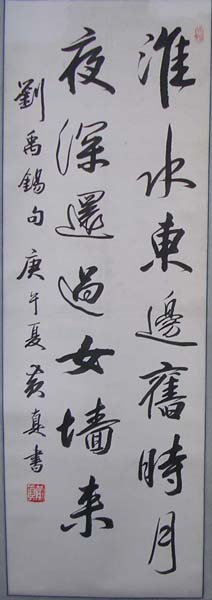 淮水東邊舊時月
夜深還過女墻来
劉禹錫句 庚午夏 黄真書